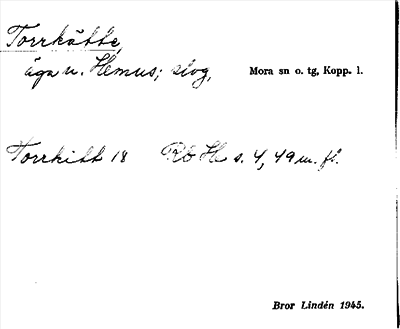 Torrkätte,
äga u. Hemus; skog, Mora sn o. tg, Kopp. l.
Torrkitt 18 Rb H s. 4, 49 m. fl.
Bror Lindén 1945.